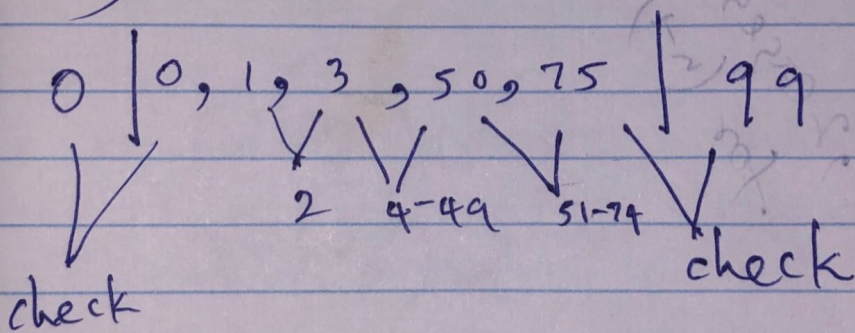 0 | 0, 1, 3, 50, 75 | 99
2 4-49 51-74
check check